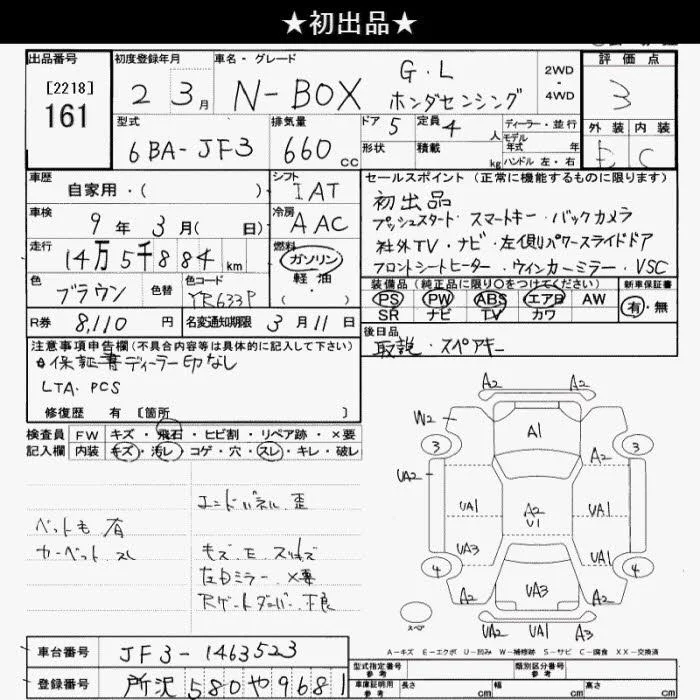 ★初出品★
出品番号 初度登録年月 車名・グレード 評価点
[2218] 161 2 3月 N-BOX G・L ホンダセンシング 2WD・4WD 3
型式 排気量 ドア 5 定員 4人 ディーラー・並行 外装 内装
6BA-JF3 660cc 形状 積載 kg モデル年式 年 ハンドル 左・右 E C
車歴 自家用・( ) シフト IAT
セールスポイント (正常に機能するものに限ります)
初出品
プッシュスタート・スマートキー・バックカメラ
社外TV・ナビ・左側パワースライドドア
フロントシートヒーター・ウィンカーミラー・VSC
車検 9年 3月( 日) 冷房 AAC
走行 14万5千884km 燃料 ガソリン
軽油
( ・ )
色 ブラウン 色替 色コード YR633P
装備品 (純正品に限り○をつけてください) 新車保証書
PS PW ABS エアB AW 有・無
SR ナビ TV カワ
R券 8,110円 名変通知期限 3月11日
後日品
取説・スペアキー
注意事項申告欄(不具合内容等は具体的に記入して下さい)
保証書ディーラー印なし
LTA・PCS
修復歴 有 [箇所 ]
検査員 FW キズ・飛石・ヒビ割・リペア跡・×要
記入欄 内装 キズ・汚レ・コゲ・穴・スレ・キレ・破レ
エンドパネル 歪
ペット毛 有
カーペット スレ
キズ E スリキズ
左Dミラー ×要
Rゲートダンパー 不良
A2 A2
W2 A1 A2
3 3
UA2
UA1 A2 U1 UA1
UA3 UA1
4 4
A2 UA3 A2
スペア
UA2 UA1 A3
A-キズ E-エクボ U-凹み W-補修跡 S-サビ C-腐食 XX-交換済
車台番号 JF3-1463523
登録番号 所沢 580 や 9681
型式指定番号 参考 類別区分番号 参考
車庫証明用 参考 長さ cm 幅 cm 高さ cm